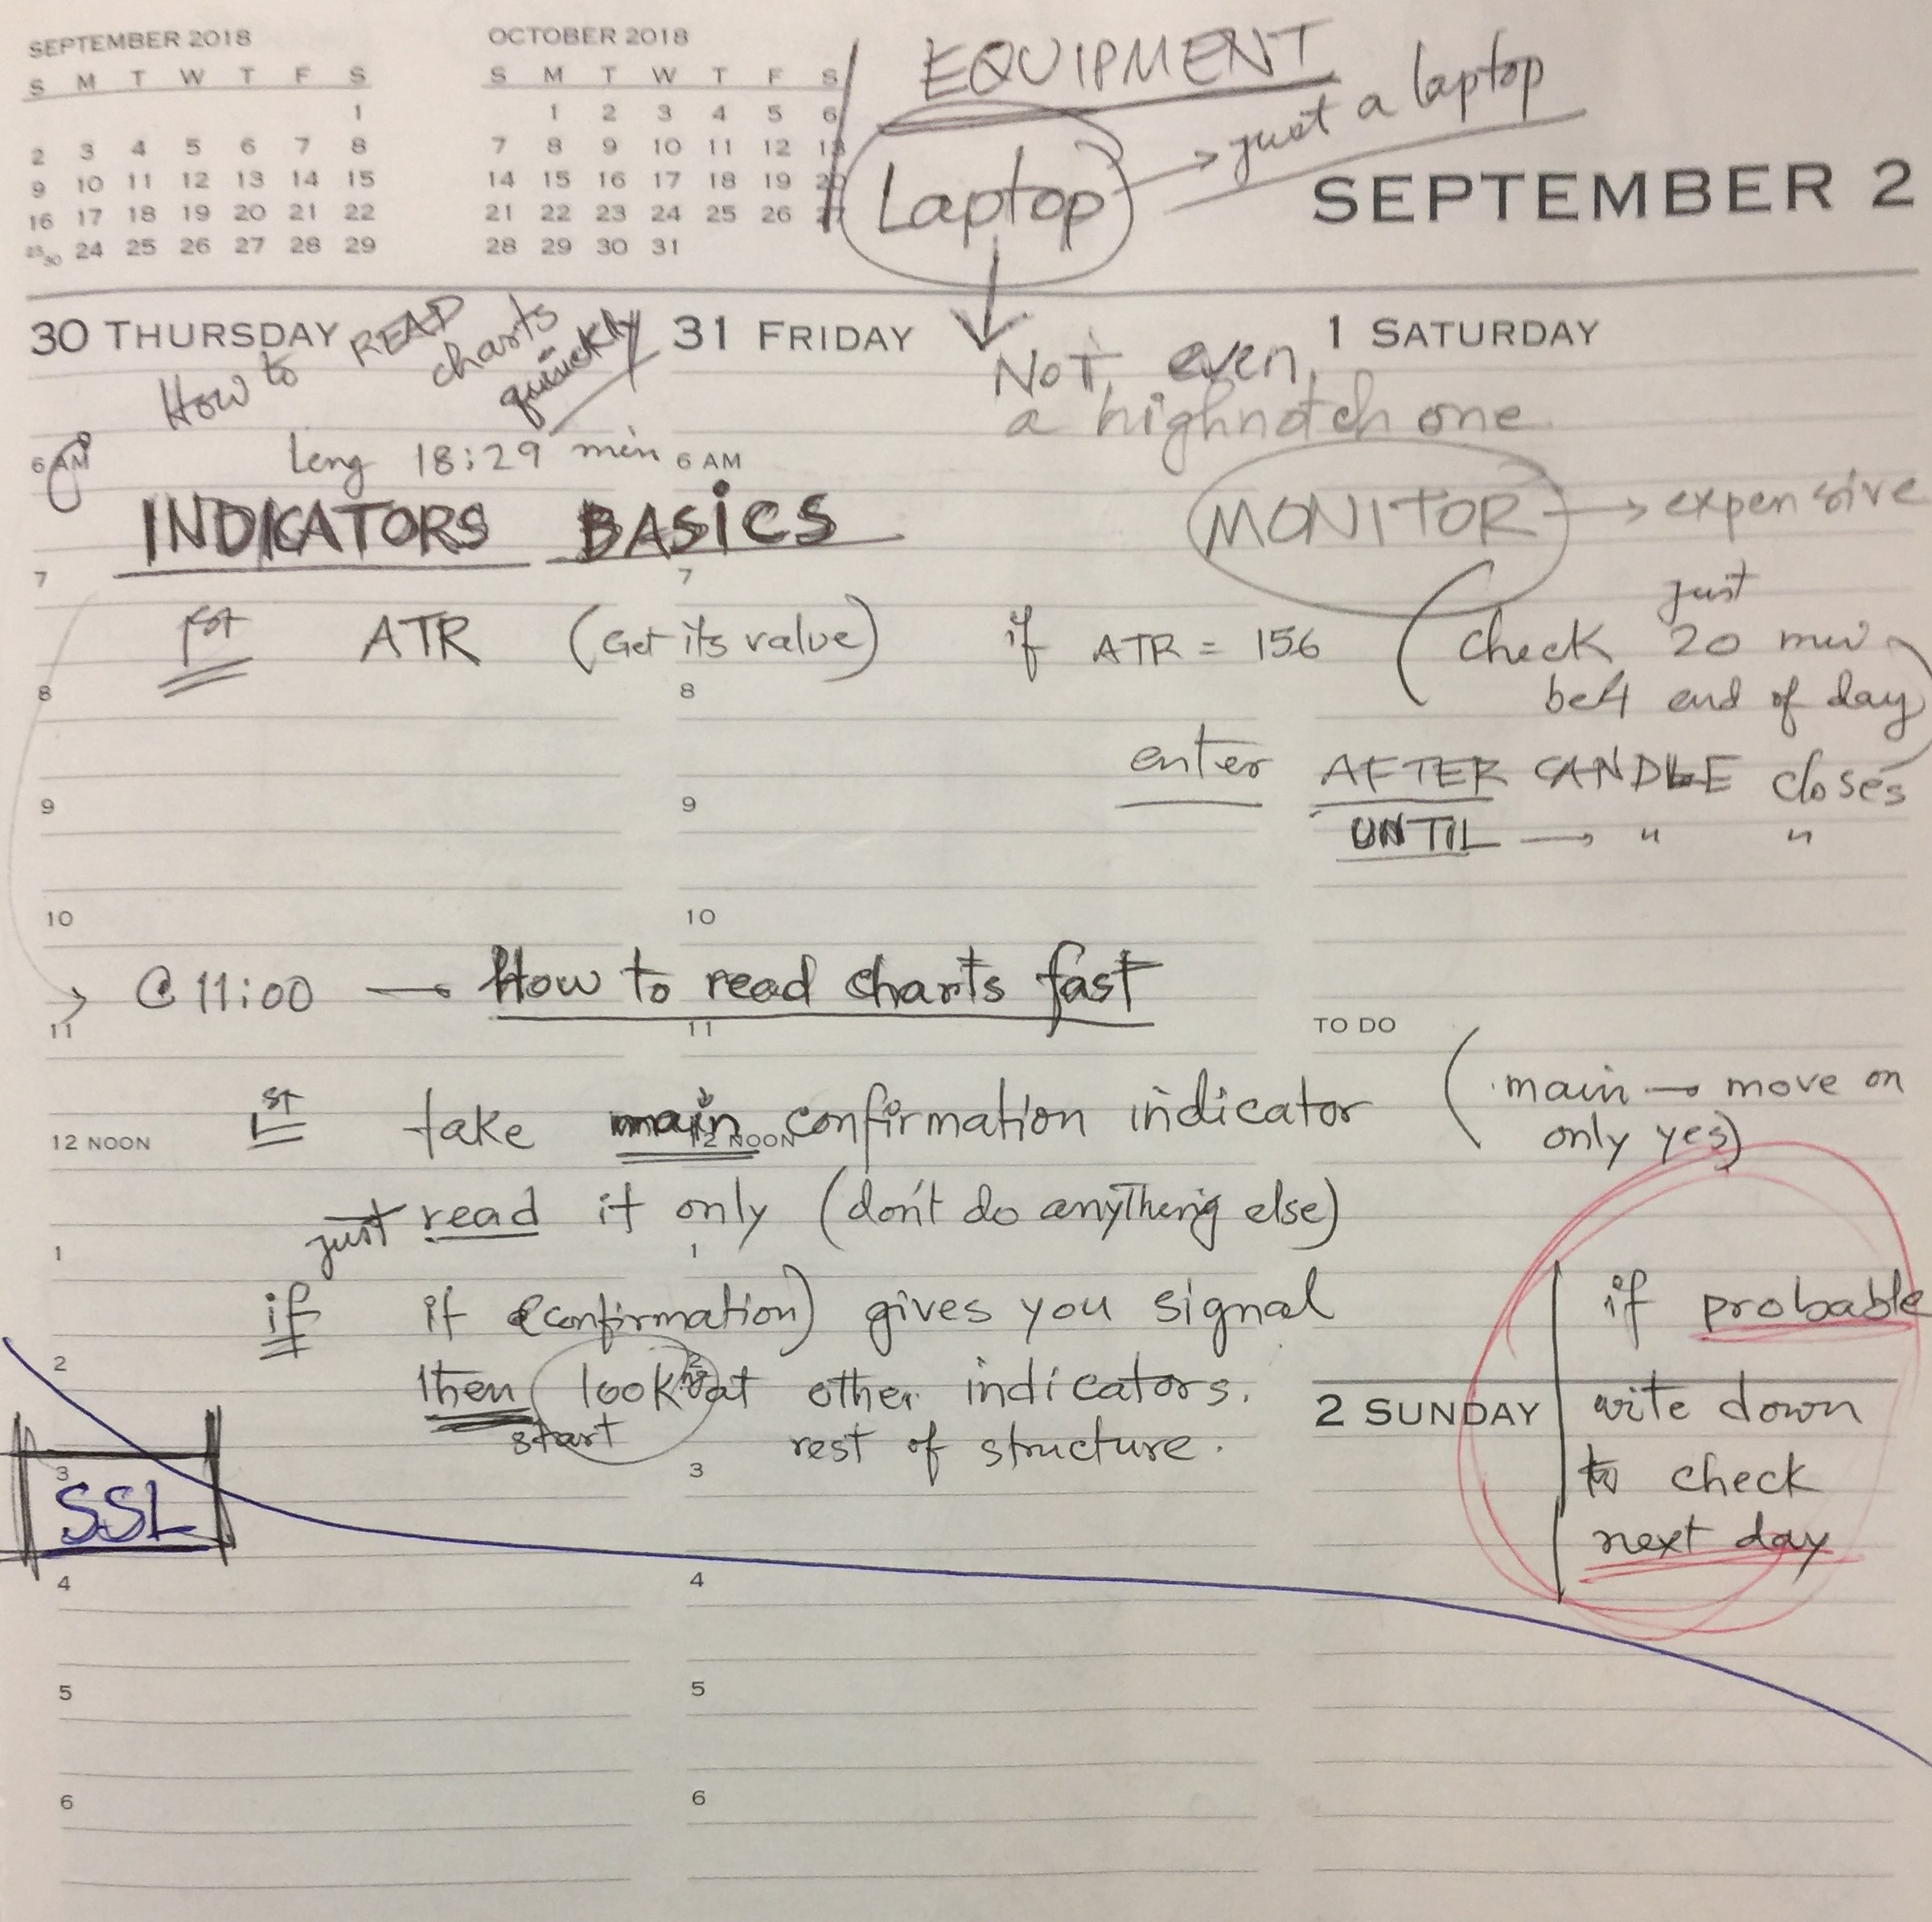 SEPTEMBER 2018
S M T W T F S
1
2 3 4 5 6 7 8
9 10 11 12 13 14 15
16 17 18 19 20 21 22
23/30 24 25 26 27 28 29
OCTOBER 2018
S M T W T F S
1 2 3 4 5 6
7 8 9 10 11 12 13
14 15 16 17 18 19 20
21 22 23 24 25 26 27
28 29 30 31
EQUIPMENT
Laptop → just a laptop
SEPTEMBER 2
30 THURSDAY
31 FRIDAY
1 SATURDAY
How to READ charts quickly
Not even
a highnotch one
Leng 18:29 min
6 AM
6 AM
MONITOR → expensive
INDICATORS BASICS
7
7
1st ATR (Get its value) if ATR = 156 (Check just 20 min
be4 end of day)
8
8
enter AFTER CANDLE closes
UNTIL → " "
9
9
10
10
→ @ 11:00 → How to read charts fast
11
11
TO DO
1st take main confirmation indicator (main → move on
only yes)
12 NOON
12 NOON
just read it only (don't do anything else)
1
1
if if (confirmation) gives you signal
then look at other indicators.
start rest of structure.
2
2
if probable
write down
to check
next day
2 SUNDAY
3
3
SSL
4
4
5
5
6
6